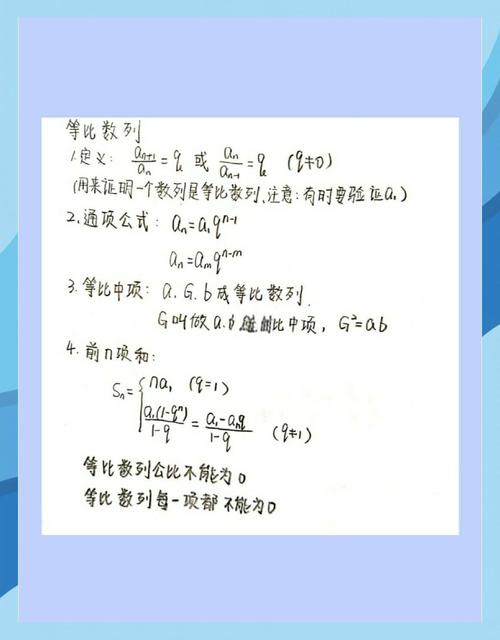 等比数列
1.定义: aₙ₊₁/aₙ=q 或 aₙ/aₙ₋₁=q (q≠0)
(用来证明一个数列是等比数列,注意:有时要验证a₁)
2.通项公式: aₙ=a₁qⁿ⁻¹
aₙ=aₘqⁿ⁻ᵐ
3.等比中项: a.G.b成等比数列.
G叫做a.b 比中项, G²=ab
4.前n项和:
Sₙ={na₁ (q=1)
a₁(1-qⁿ)/1-q = a₁-aₙq/1-q (q≠1)
等比数列公比不能为0
等比数列每一项都不能为0